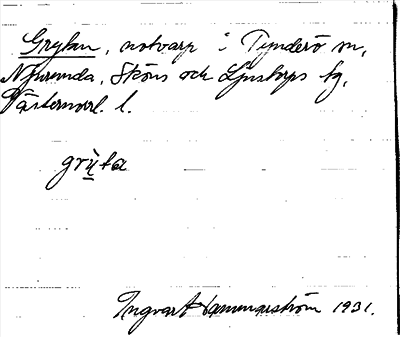 Grytan, notvarp i Tynderö sn,
Njurunda, Sköns och Ljustorps tg,
Västernorrl. l.
grùta
Ingvar Hammarström 1931.